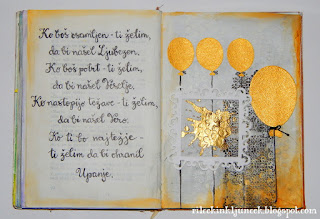 Ko boš osamljen - ti želim,
da bi našel Ljubezen.
Ko boš potrt - ti želim,
da bi našel Veselje.
Ko nastopijo težave - ti želim,
da bi našel Vero.
Ko ti bo najtežje -
ti želim da bi ohranil
Upanje.
rilckinkljuncek.blogspot.com